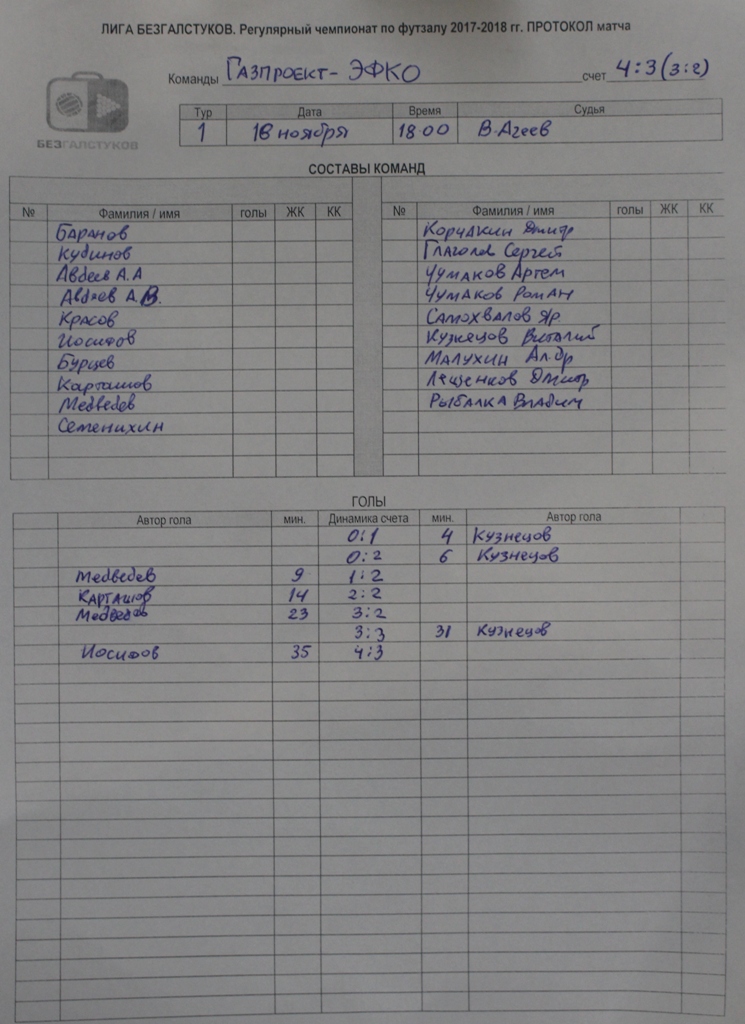 ЛИГА БЕЗГАЛСТУКОВ. Регулярный чемпионат по футзалу 2017-2018 гг. ПРОТОКОЛ матча
Команды ГАЗПРОЕКТ - ЭФКО счет 4:3 (3:2)
БЕЗГАЛСТУКОВ
Тур Дата Время Судья
1 18 ноября 18 00 В. Агеев
СОСТАВЫ КОМАНД
№ Фамилия / имя голы ЖК КК № Фамилия / имя голы ЖК КК
Баранов Корчакин Дмитр
Кубинов Глаголев Сергей
Авдеев А.А Чумаков Артем
Авдеев А.В. Чумаков Роман
Красов Самохвалов Яр
Иосифов Кузнецов Виталий
Бурцев Малухин Ал-др
Карташов Лященков Дмитр
Медведев Рыбалка Вladим
Семенихин
ГОЛЫ
Автор гола мин. Динамика счета мин. Автор гола
0:1 4 Кузнецов
0:2 6 Кузнецов
Медведев 9 1:2
Карташов 14 2:2
Медведев 23 3:2
3:3 31 Кузнецов
Иосифов 35 4:3